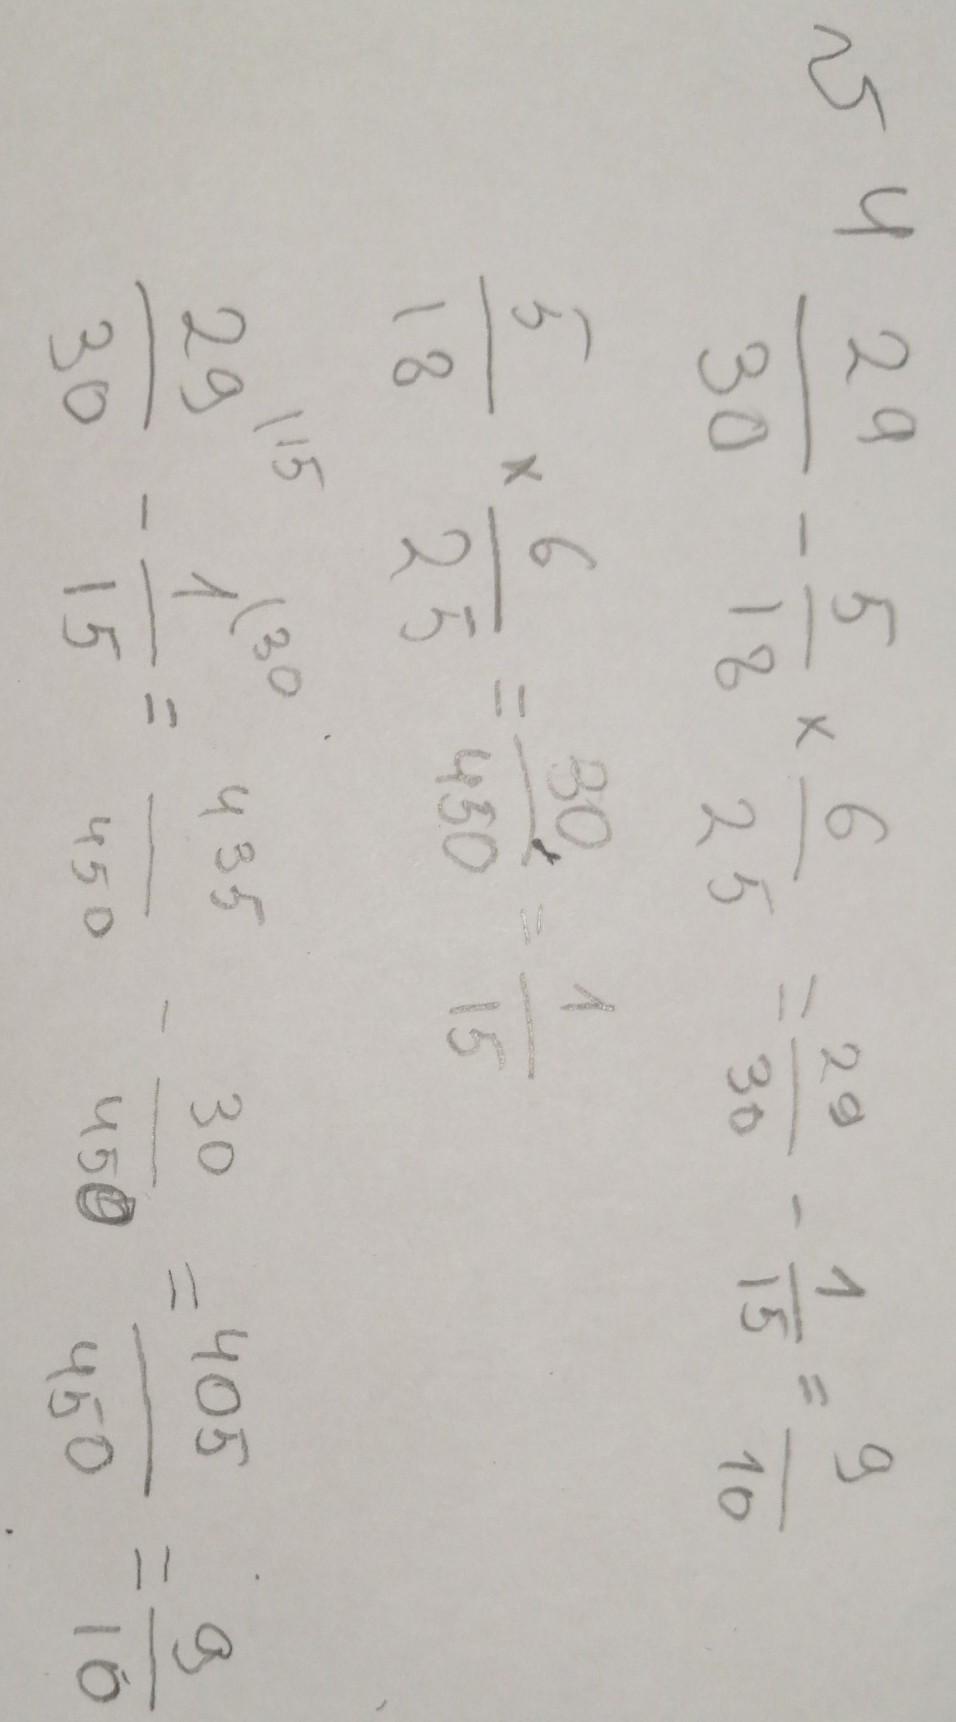 № 4 29/30 - 5/18 × 6/25 = 29/30 - 1/15 = 9/10
5/18 × 6/25 = 30/450 = 1/15
29(15/30 - 1(30/15 = 435/450 - 30/450 = 405/450 = 9/10